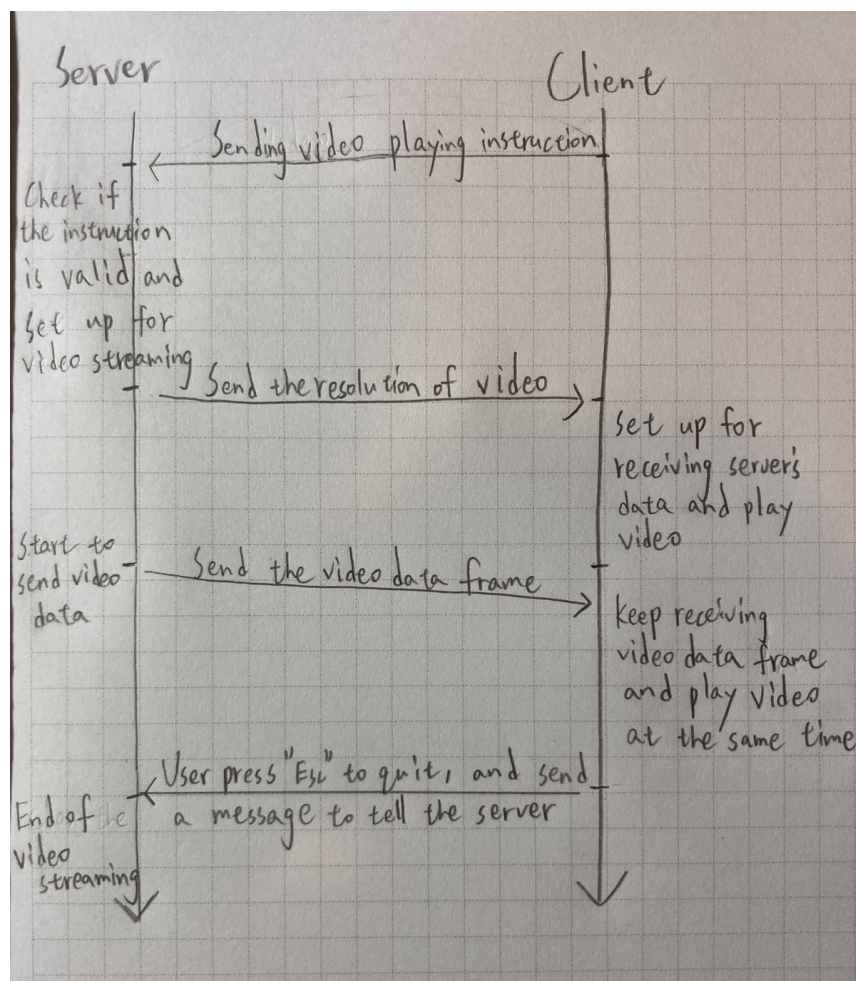 Server
Client
Sending video playing instruction
Check if
the instruction
is valid and
set up for
video streaming
Send the resolution of video
set up for
receiving server's
data and play
video
Start to
send video
data
Send the video data frame
keep receiving
video data frame
and play video
at the same time
User press "Esc" to quit, and send
a message to tell the server
End of
video
streaming